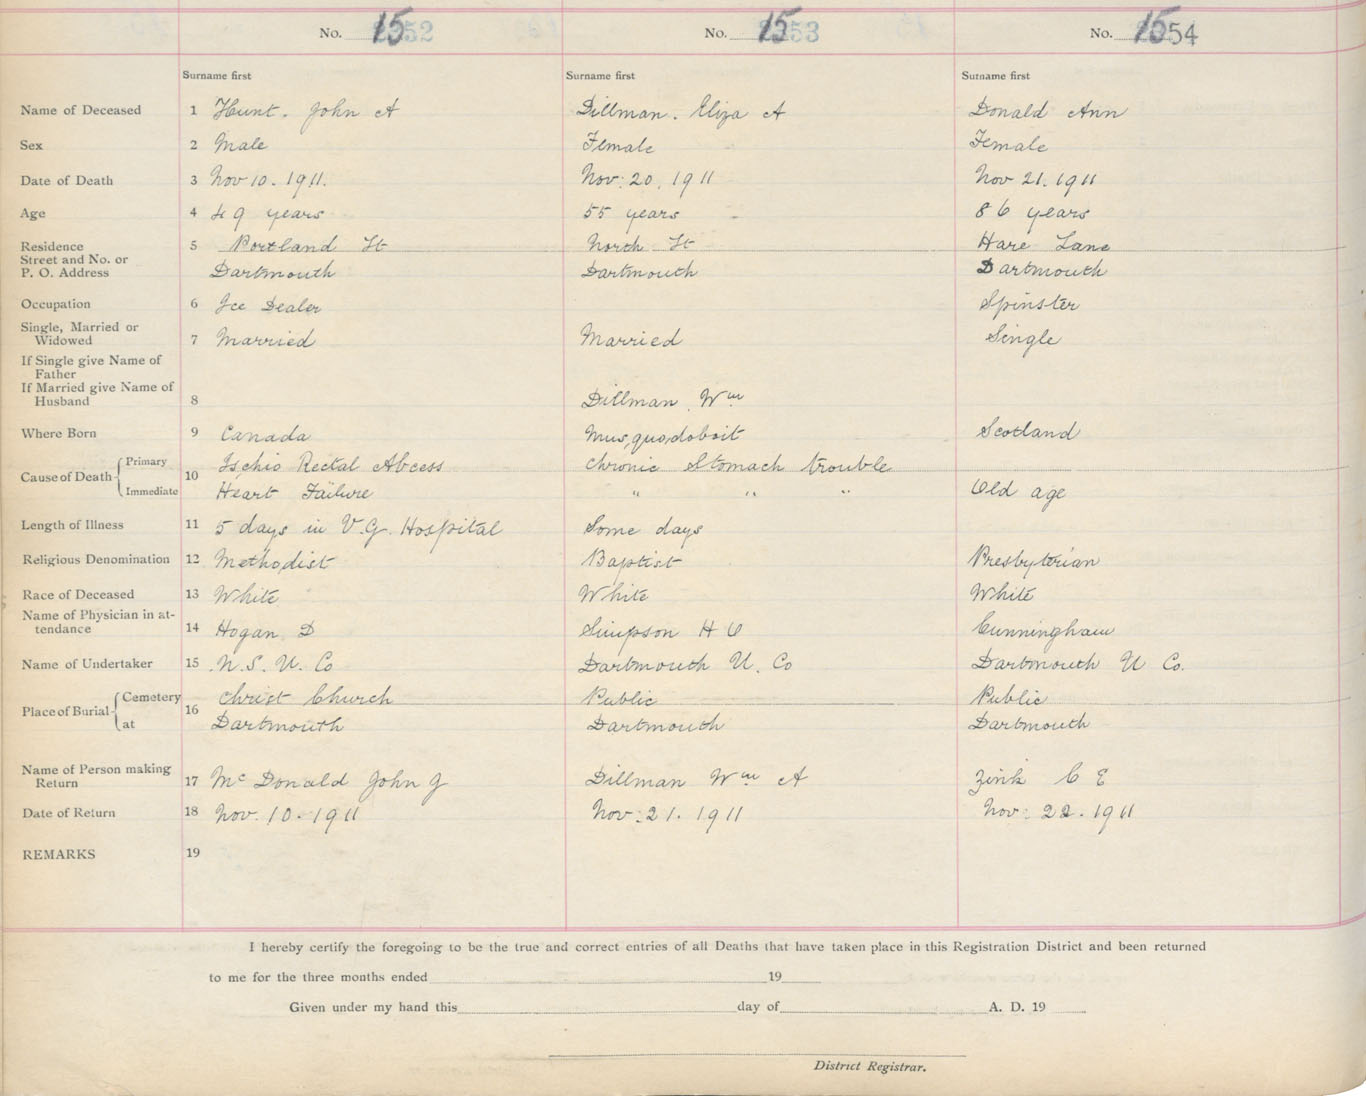 No. 1552 No. 1553 No. 1554
Surname first Surname first Surname first
Name of Deceased 1 Hunt. John A Dillman. Eliza A Donald Ann
Sex 2 Male Female Female
Date of Death 3 Nov 10. 1911. Nov. 20. 1911 Nov 21. 1911
Age 4 49 years 55 years 86 years
Residence 5 Portland St North St Hare Lane
Street and No. or
P. O. Address Dartmouth Dartmouth Dartmouth
Occupation 6 Ice Dealer Spinster
Single, Married or
Widowed 7 Married Married Single
If Single give Name of
Father
If Married give Name of
Husband 8 Dillman. Wm
Where Born 9 Canada Musquodoboit Scotland
Cause of Death Primary 10 Ischio Rectal Abcess Chronic Stomach trouble
Immediate Heart Failure " " " Old age
Length of Illness 11 5 days in V.G. Hospital Some days
Religious Denomination 12 Methodist Baptist Presbyterian
Race of Deceased 13 White White White
Name of Physician in at-
tendance 14 Hogan D Simpson H O Cunningham
Name of Undertaker 15 N.S. U. Co Dartmouth U. Co Dartmouth U Co.
Place of Burial Cemetery 16 Christ Church Public Public
at Dartmouth Dartmouth Dartmouth
Name of Person making
Return 17 Mc Donald John J Dillman Wm A Zink C E
Date of Return 18 Nov. 10. 1911 Nov. 21. 1911 Nov. 22. 1911
REMARKS 19
I hereby certify the foregoing to be the true and correct entries of all Deaths that have taken place in this Registration District and been returned
to me for the three months ended 19
Given under my hand this day of A. D. 19
District Registrar.